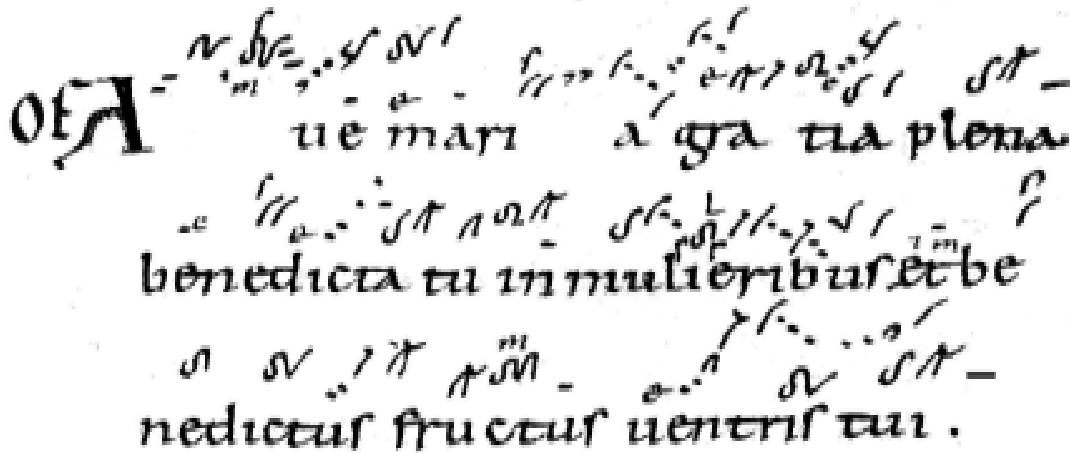 Of A ue mari a gra tia plena.
benedicta tu in mulieribus et be
nedictus fructus uentris tui .